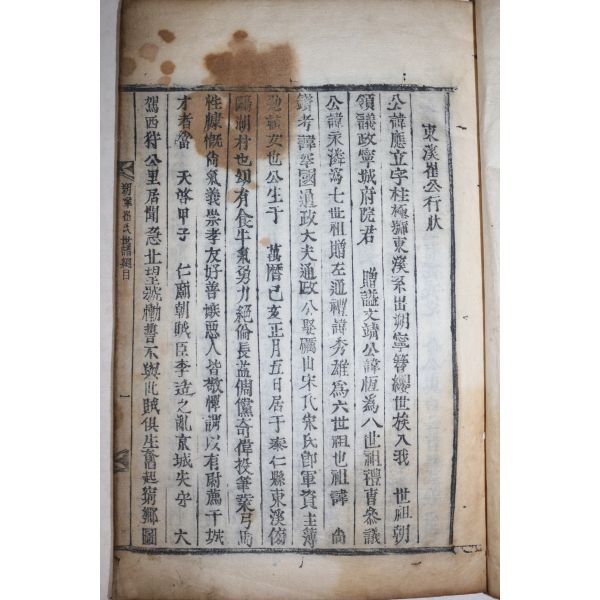 東溪崔公行狀
公諱應立字柱極號東溪系出朔寧簪纓世族入我 世祖朝
領議政寧城府院君 贈諡文靖公諱恒為八世祖禮曹參議
公諱永潾為七世祖贈左通禮諱秀雄為六世祖也祖諱 尚
考諱峯國通政大夫通政公娶礪山宋氏宋氏即軍資主簿
女也公生于 萬曆己亥正月五日居于泰仁縣東溪傍
湖村也幼有食牛氣勇力絕倫長益倜儻奇偉投筆業弓馬
性慷慨尚氣義崇孝友好善嫉惡人皆敬憚謂以有尉薦干城
才者當 天啓甲子 仁廟朝賊臣李适之亂京城失守 大
駕西狩公里居聞急北望號慟誓不與此賊俱生奮起窮鄉圖
朔寧崔氏世譜 一